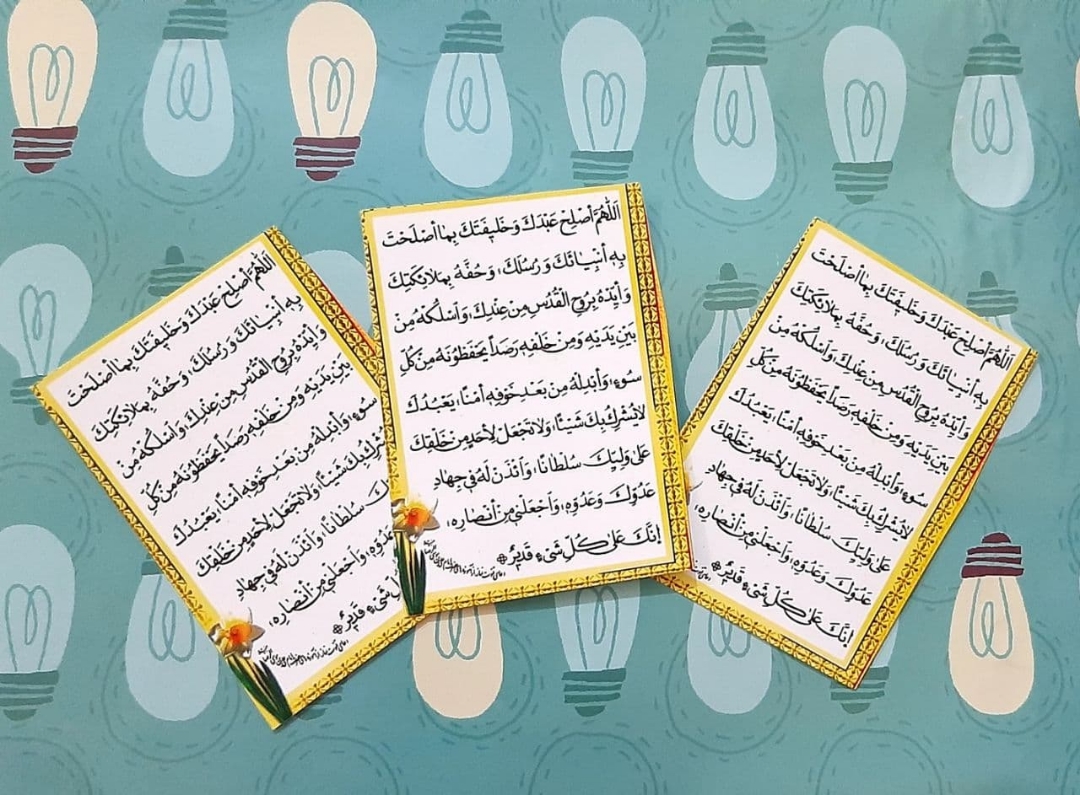 اَللّٰهُمَّ أَصْلِحْ عَبْدَكَ وَخَلِيفَتَكَ بِمَا أَصْلَحْتَ
بِهِ أَنْبِيَائَكَ وَرُسُلَكَ، وَحُفَّهُ بِمَلَائِكَتِكَ
وَأَيِّدْهُ بِرُوحِ الْقُدُسِ مِنْ عِنْدِكَ، وَاسْلُكْهُ مِنْ
بَيْنِ يَدَيْهِ وَمِنْ خَلْفِهِ رَصَداً يَحْفَظُونَهُ مِنْ كُلِّ
سُوءٍ، وَأَبْدِلْهُ مِنْ بَعْدِ خَوْفِهِ أَمْنًا، يَعْبُدُكَ
بِكَ شَيْئًا، وَلَا تَجْعَلْ لِأَحَدٍ مِنْ خَلْقِكَ
سُلْطَانًا، وَائْذَنْ لَهُ فِي جِهَادِ
وَعَدُوِّهِ، وَاجْعَلْنِي مِنْ أَنْصَارِهِ،
كُلِّ شَيْءٍ قَدِيرٌ
اَللّٰهُمَّ أَصْلِحْ عَبْدَكَ وَخَلِيفَتَكَ بِمَا أَصْلَحْتَ
بِهِ أَنْبِيَائَكَ وَرُسُلَكَ، وَحُفَّهُ بِمَلَائِكَتِكَ
وَأَيِّدْهُ بِرُوحِ الْقُدُسِ مِنْ عِنْدِكَ، وَاسْلُكْهُ مِنْ
بَيْنِ يَدَيْهِ وَمِنْ خَلْفِهِ رَصَداً يَحْفَظُونَهُ مِنْ كُلِّ
سُوءٍ، وَأَبْدِلْهُ مِنْ بَعْدِ خَوْفِهِ أَمْنًا، يَعْبُدُكَ
لَا يُشْرِكُ بِكَ شَيْئًا، وَلَا تَجْعَلْ لِأَحَدٍ مِنْ خَلْقِكَ
عَلَى وَلِيِّكَ سُلْطَانًا، وَائْذَنْ لَهُ فِي جِهَادِ
عَدُوِّكَ وَعَدُوِّهِ، وَاجْعَلْنِي مِنْ أَنْصَارِهِ،
إِنَّكَ عَلَى كُلِّ شَيْءٍ قَدِيرٌ
اَللّٰهُمَّ أَصْلِحْ عَبْدَكَ وَخَلِيفَتَكَ بِمَا أَصْلَحْتَ
بِهِ أَنْبِيَائَكَ وَرُسُلَكَ، وَحُفَّهُ بِمَلَائِكَتِكَ
وَأَيِّدْهُ بِرُوحِ الْقُدُسِ مِنْ عِنْدِكَ، وَاسْلُكْهُ مِنْ
بَيْنِ يَدَيْهِ وَمِنْ خَلْفِهِ رَصَداً يَحْفَظُونَهُ مِنْ كُلِّ
سُوءٍ، وَأَبْدِلْهُ مِنْ بَعْدِ خَوْفِهِ أَمْنًا، يَعْبُدُكَ
لَا يُشْرِكُ بِكَ شَيْئًا، وَلَا تَجْعَلْ لِأَحَدٍ مِنْ خَلْقِكَ
عَلَى وَلِيِّكَ سُلْطَانًا، وَائْذَنْ لَهُ فِي جِهَادِ
عَدُوِّكَ وَعَدُوِّهِ، وَاجْعَلْنِي مِنْ أَنْصَارِهِ،
إِنَّكَ عَلَى كُلِّ شَيْءٍ قَدِيرٌ